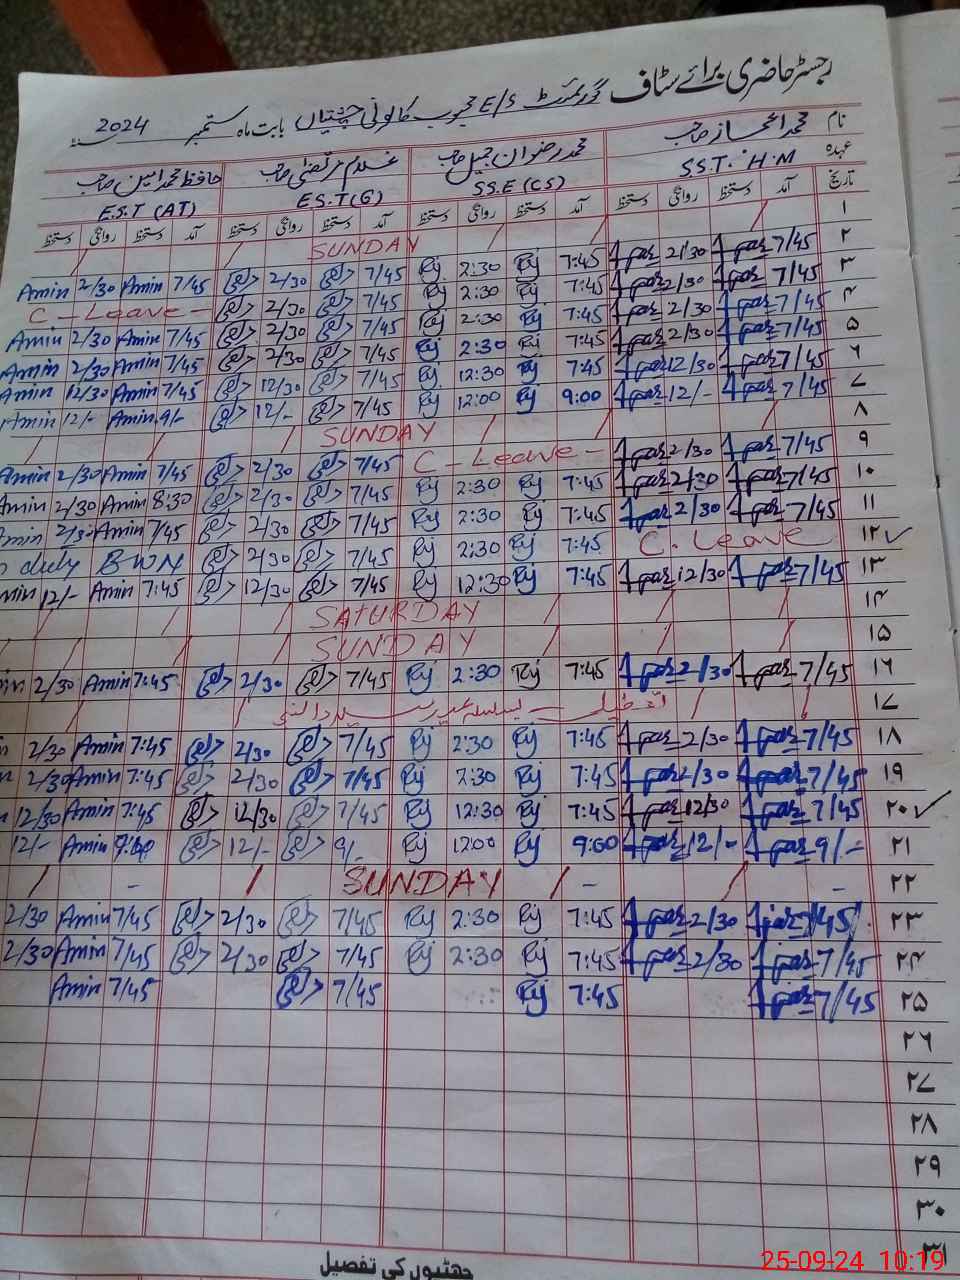 رجسٹر حاضری برائے سٹاف گورنمنٹ E/S محبوب کالونی چشتیاں بابت ماہ ستمبر سنہ 2024
نام محمد اعجاز صاحب محمد رضوان جمیل صاحب غلام مرتضیٰ صاحب حافظ محمد امین صاحب
عہدہ S.S.T. H.M S.S.E (CS) E.S.T (G) E.S.T (AT)
تاریخ آمد دستخط روانگی دستخط آمد دستخط روانگی دستخط آمد دستخط روانگی دستخط آمد دستخط روانگی دستخط
۱ SUNDAY
۲ 7/45 2/30 7:45 Rj 2:30 Rj 7/45 2/30 7/45 Amin 2/30 Amin
۳ 7/45 2/30 7:45 Rj 2:30 Rj 7/45 2/30 C - Leave -
۴ 7/45 2/30 7:45 Rj 2:30 Rj 7/45 2/30 7/45 Amin 2/30 Amin
۵ 7/45 2/30 7:45 Rj 2:30 Rj 7/45 2/30 7/45 Amin 2/30 Amin
۶ 7/45 12/30 7:45 Rj 12:30 Rj 7/45 12/30 7/45 Amin 12/30 Amin
۷ 7/45 12/- 9:00 Rj 12:00 Rj 7/45 12/- 9/- Amin 12/- Amin
۸ SUNDAY
۹ 7/45 2/30 C - Leave - 7/45 2/30 7/45 Amin 2/30 Amin
۱۰ 7/45 2/30 7:45 Rj 2:30 Rj 7/45 2/30 8:30 Amin 2/30 Amin
۱۱ 7/45 2/30 7:45 Rj 2:30 Rj 7/45 2/30 7/45 Amin 2/30 Amin
۱۲ C. Leave 7:45 Rj 2:30 Rj 7/45 2/30 duty BWN
۱۳ 7/45 12/30 7:45 Rj 12:30 Rj 7/45 12/30 7:45 Amin 12/-
۱۴ SATURDAY
۱۵ SUNDAY
۱۶ 7/45 2/30 7:45 Rj 2:30 Rj 7/45 2/30 7:45 Amin 2/30
۱۷ تعطیل - بسلسلہ عید میلاد النبی
۱۸ 7/45 2/30 7:45 Rj 2:30 Rj 7/45 2/30 7:45 Amin 2/30
۱۹ 7/45 2/30 7:45 Rj 2:30 Rj 7/45 2/30 7:45 Amin 2/30
۲۰ 7/45 12/30 7:45 Rj 12:30 Rj 7/45 12/30 7:45 Amin 12/30
۲۱ 9/- 12/- 9:00 Rj 12:00 Rj 9/- 12/- 9:00 Amin 12/-
۲۲ SUNDAY
۲۳ 7/45 2/30 7:45 Rj 2:30 Rj 7/45 2/30 7/45 Amin 2/30
۲۴ 7/45 2/30 7:45 Rj 2:30 Rj 7/45 2/30 7/45 Amin 2/30
۲۵ 7/45 7:45 Rj 7/45 7/45 Amin
۲۶
۲۷
۲۸
۲۹
۳۰
۳۱
چھٹیوں کی تفصیل
25-09-24 10:19